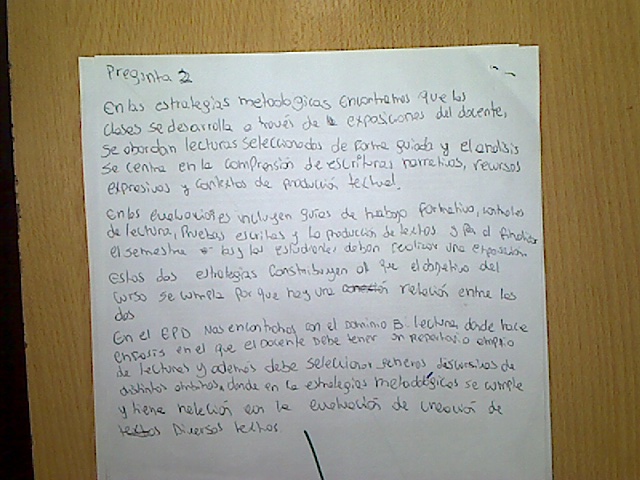 Pregunta 2
En las estrategias metodologicas encontramos que las
clases se desarrolla a través de la exposiciones del docente,
se abordan lecturas seleccionadas de forma guiada y el analisis
se centra en la comprensión de escrituras narrativas, recursos
expresivos y contextos de producción textual.
En las evaluaciones incluyen guías de trabajo formativo, controles
de lectura, Pruebas escritas y la producción de textos y por al finalizar
el semestre las y los estudiantes deban realizar una exposición.
Estas dos estrategias constribuyen al que el objetivo del
curso se cumpla por que hay una conexión relación entre las
dos
En el EPD nos encontrahos con el Dominio B: lectura, donde hace
enfasis en el que el Docente Debe tener un repertorio amplio
de lecturas y ademos debe seleccionar géneros discursivos de
distintos ambitos, donde en la estrategias metodológicas se cumple
y tiene relación con la evaluación de creación de
textos Diversos textos.